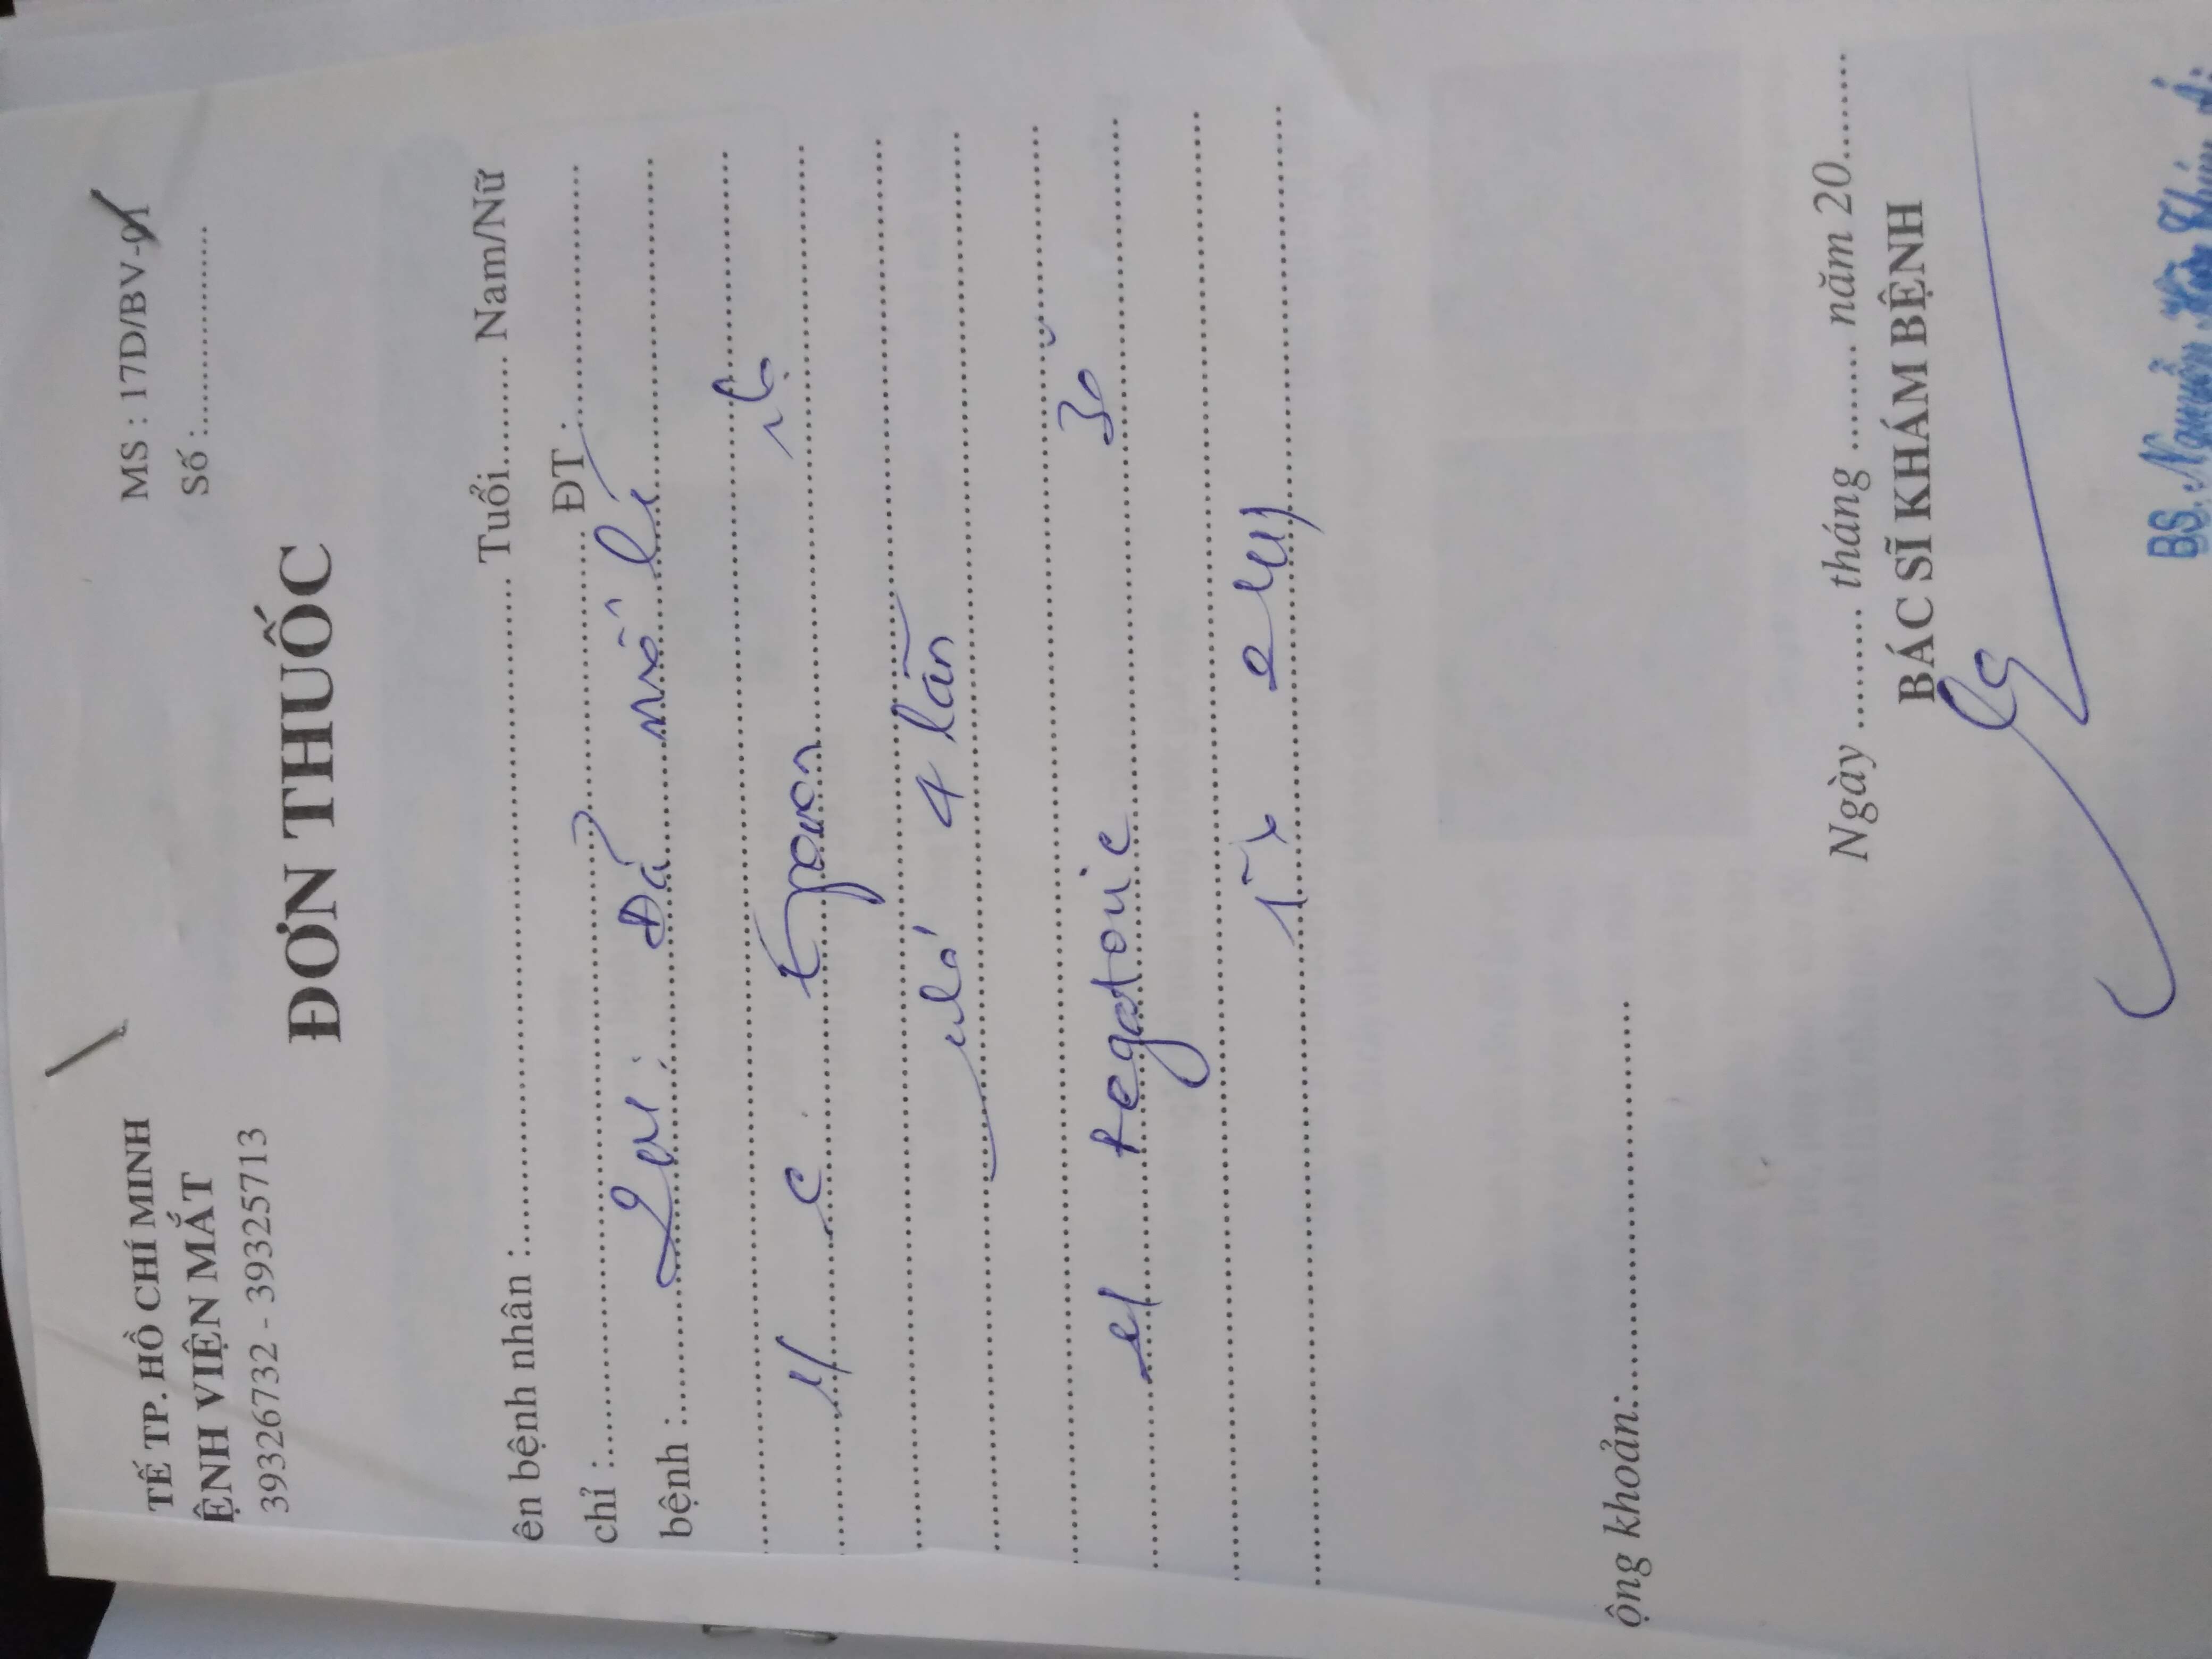 TẾ TP. HỒ CHÍ MINH
ỆNH VIỆN MẮT
39326732 - 39325713
MS : 17D/BV-01
Số :...................
ĐƠN THUỐC
ên bệnh nhân :..................................................... Tuổi......... Nam/Nữ
chỉ :.......................................................................... ĐT :.....................
bệnh : Đã mổ lé
1/
nhỏ 4 lần
2/ Regatonic 30
ộng khoản:.............................
Ngày ......... tháng ........ năm 20........
BÁC SĨ KHÁM BỆNH
BS. Nguyễn